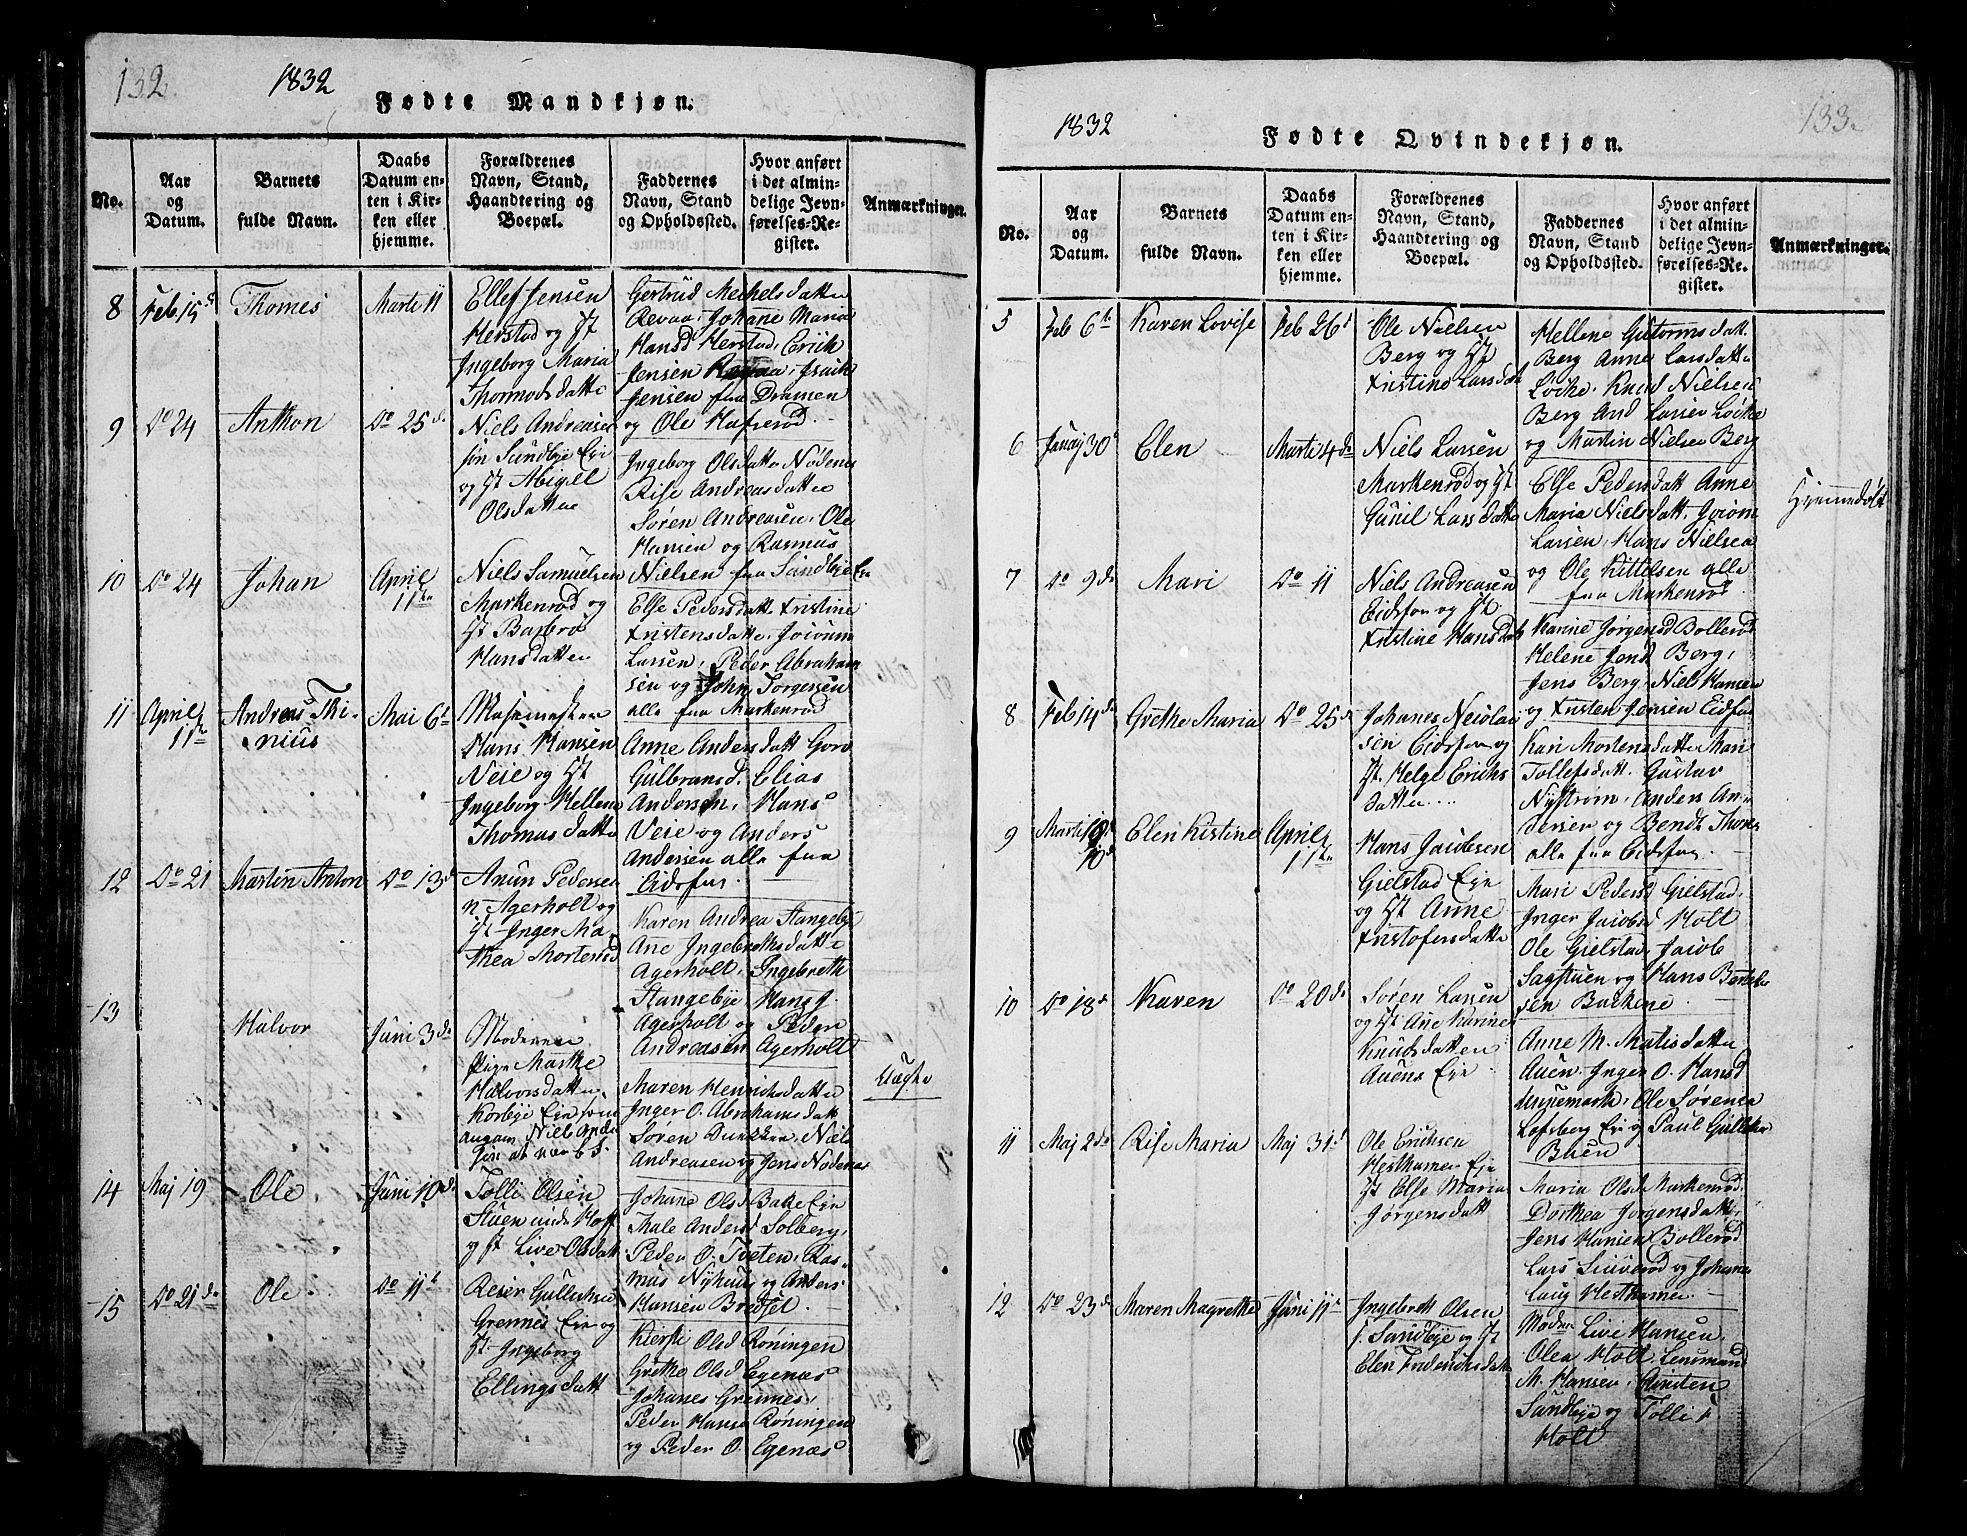 132.
1832
Fødte Mandkjøn.
No.
Aar
og
Datum.
Barnets
fulde Navn.
Daabs
Datum en-
ten i Kir-
ken eller
hjemme.
Forældrenes
Navn, Stand,
Haandtering og
Boepæl.
Faddernes
Navn, Stand
og Opholdssted.
Hvor anført
i det almin-
delige Jevn-
førelses-Re-
gister.
Anmærkninger.
8
Feb. 15
Thomes
Marti 11
Ellef Jensen
Herstad og Hst
Ingeborg Maria
Thormodsdatte
Gertrud Michelsdatte
Revaa, Johane Maria
Hansd Herstad, Erich
Jensen Isaich
Jensen fra Dramen
og Ole Hafverød
9
Do 24
Anthon
Do 25 d.
Niels Andreasen
Sundbye Eje
og Hst Abigel
Olsdatter
Ingeborg Olsdatte Nødenes
Rise Andreasdatte
Søren Andreasen, Ole
Hansen og Rasmus
Nielsen fra Sundbye Eje
10
Do 24
Johan
April
11te
Niels Samuelsen
Markenrød og
Hst Barbro
Hansdatter
Else Pedersdatte Kristine
Kristensdatte, Joiom
Larsen, Peder Abraham
sen og John Torgersen
alle fra Markenrød
11
April
11te
Andreas Thi-
nius
Mai 6t
Masemester
Hans Hansen
Neie og Hst
Ingeborg Hellene
Thomasdatte
Anne Andersdatt Goro
Gulbransd. Elias
Andersen, Hans
Veie og Anders
Andersen alle fra
Eidsfos.
12
Do 21
Martin Anton
Do 13 d
Anun Pedersen
n. Agerholt og
Hst Inger Ma
thea Mortensd
Karen Andrea Stangebye
Ane Ingebrethsdatte
Agerholt, Ingebreth
Stangebye, Hans J.
Agerholt og Peder
Andreasen Agerholt
13
Halvor
Juni 3 d.
Moderen
Pige Marthe
Halvorsdatter
Korbye Eje
Maren Henrichsdatte
Inger O. Abrahamsdatt
Søren Niels
Andreasen og Jens Nødenes
Uægte
14
Maj 19
Ole
Juni 10 d.
Tolli Olsen
Stuen unde Hoff
og Hst Live Olsdatt
Johane Olsd Bakke Eje
Thale Andersd Solberg,
Peder O. Tveten, Ras-
mus Nyhuus og Anders
Hansen Brødsel.
15
Do 21 d.
Ole
Do 11t
Reier Gullichse
Grennes Eje og
Hst Ingeborg
Ellingsdatt
Kiersti Olsd Røningen
Grethe Olsd Egenæs
Johanes Grennes,
Peder Hanse Røningen
og Peder O. Egenæs
133.
1832
Fødte Qvindekjøn.
No.
Aar
og
Datum.
Barnets
fulde Navn.
Daabs
Datum en-
ten i Kir-
ken eller
hjemme.
Forældrenes
Navn, Stand,
Haandtering og
Boepæl.
Faddernes
Navn, Stand
og Opholdssted.
Hvor anført
i det almin-
delige Jevn-
førelses-Re-
gister.
Anmærkninger.
5
Feb 6t
Karen Lovise
Feb 26t
Ole Nielsen
Berg og Hst
Kristine Larsdat
Hellene Gutormsdatt.
Berg Anne Larsdatte
Løcke, Knud Nielsen
Berg And Larsen Løcke
og Martin Nielsen Berg
6
Januaj 30
Elen
Marti 4 de
Niels Larsen
Markenrød og Hst
Gunil Larsdatte
Else Pedersdatt Anne
Maria Nielsdatt. Joiom
Larsen, Hans Nielsen
og Ole Kittelsen alle
fra Markenrød
Hjemmedøbt
7
Do 9 de
Mari
Do 11
Niels Andreasen
Eidsfos og Hst.
Kristine Hansdatt
Karine Jørgensd Bollerød
Helene Jensd Berg,
Jens Berg, Niels Hansen
og Kristen Jensen Eidsfos
8
Feb 14 de
Grethe Maria
Do 25 de
Johanes Neiolai
sen Eidsfos og
Hst. Helge Erichs
datter....
Kari Mortensdatte Mari
Tollefsdatt. Gustav
Nystrøm, Anders An-
dersen og Bendt Thomes
alle fra Eidsfos.
9
Marti
10 d
Elen Kistine
April
11te
Hans Jacobsen
Gielstad Eje
og Hst Anne
Kristofersdatte
Mari Pedersd Gielstad,
Inger Jacobsd Holt
Ole Gielstad, Jacob
Sagstuen og Hans Bent
sen Backene
10
Do 18 de
Karen
Do 20 de
Søren Larsen
og Hst. Ane Karine
Knudsdatter
Auens Eje
Anne M. Matisdatte
Auen, Inger O. Hansd
Ole Sørensen
Lofsberg Eje og Paul Gullichs
Buen
11
Maj 2 de
Rise Maria
Maj 31 t
Ole Erichsen
Hesthamer Eje
Hst Else Maria
Jørgensdatt
Maria Olsd Markenrød
Dorthea Jørgensdatte,
Jens Hansen Bollerød
Lars og Johanes
Hesthamer
12
Do 23 de
Maren Magrethe
Juni 11t
Ingebreth Olsen
s. Sandbye og Hst
Elen Frederichsdatt
Moder Live Hansen,
Olea Holt, Lensmand
M. Hansen, Christen
Sundbye og Tolli
Holt